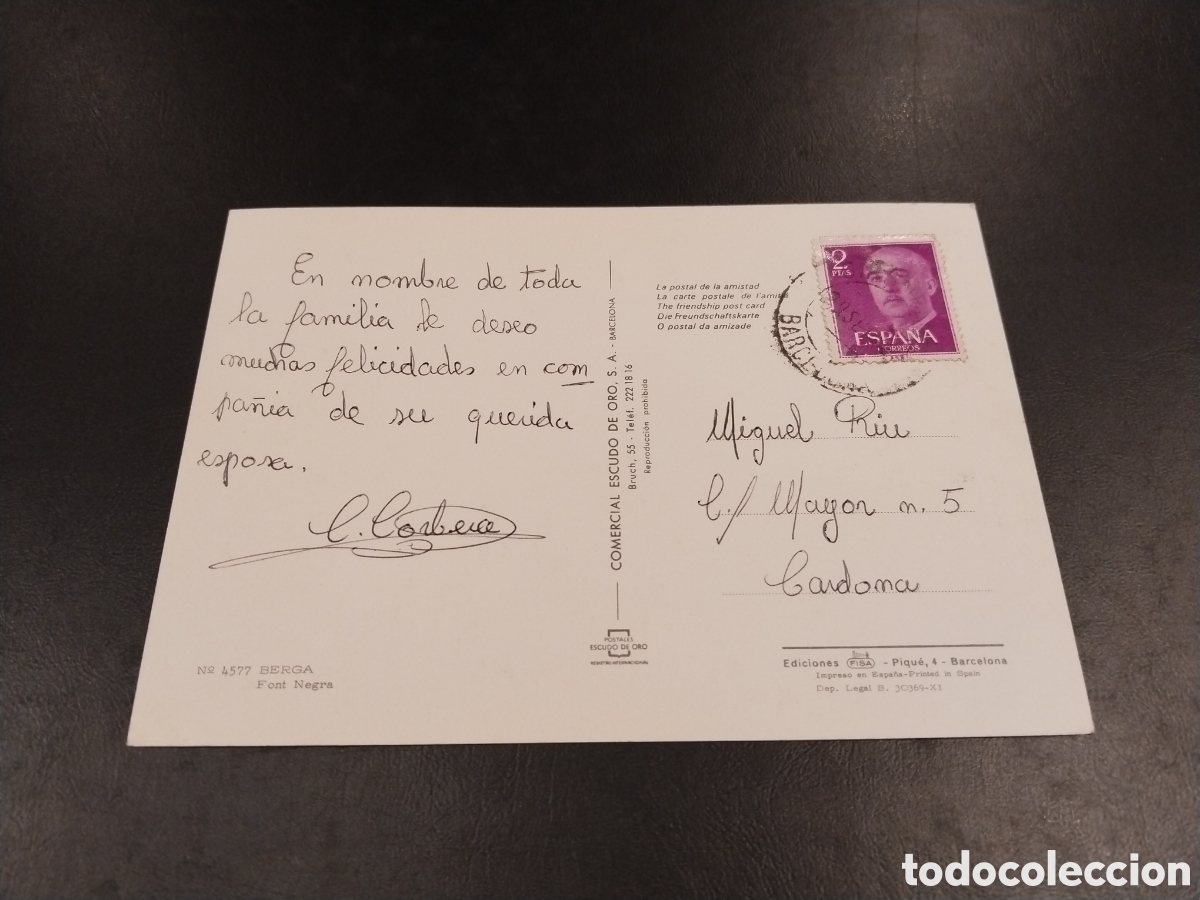 En nombre de toda
la familia le deseo
muchas felicidades en com
pañia de su querida
esposa.
C. Corbera
Nº 4577 BERGA
Font Negra
COMERCIAL ESCUDO DE ORO, S. A. - BARCELONA
Bruch, 55 - Teléf. 222 18 16
Reproducción prohibida
POSTALES
ESCUDO DE ORO
REGISTRO INTERNACIONAL
La postal de la amistad
La carte postale de l'amitié
The friendship post card
Die Freundschaftskarte
O postal da amizade
2
PTAS
ESPAÑA
CORREOS
BARCELONA
Miguel Riu
C/ Mayor n. 5
Cardona
Ediciones FISA - Piqué, 4 - Barcelona
Impreso en España-Printed in Spain
Dep. Legal B. 30369-XI
todocoleccion